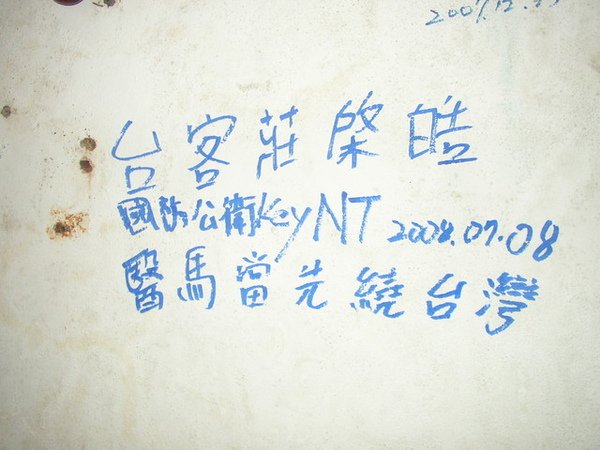 台客莊棨皓
國防公衛KeyNT 2008.07.08
醫馬當先繞台灣